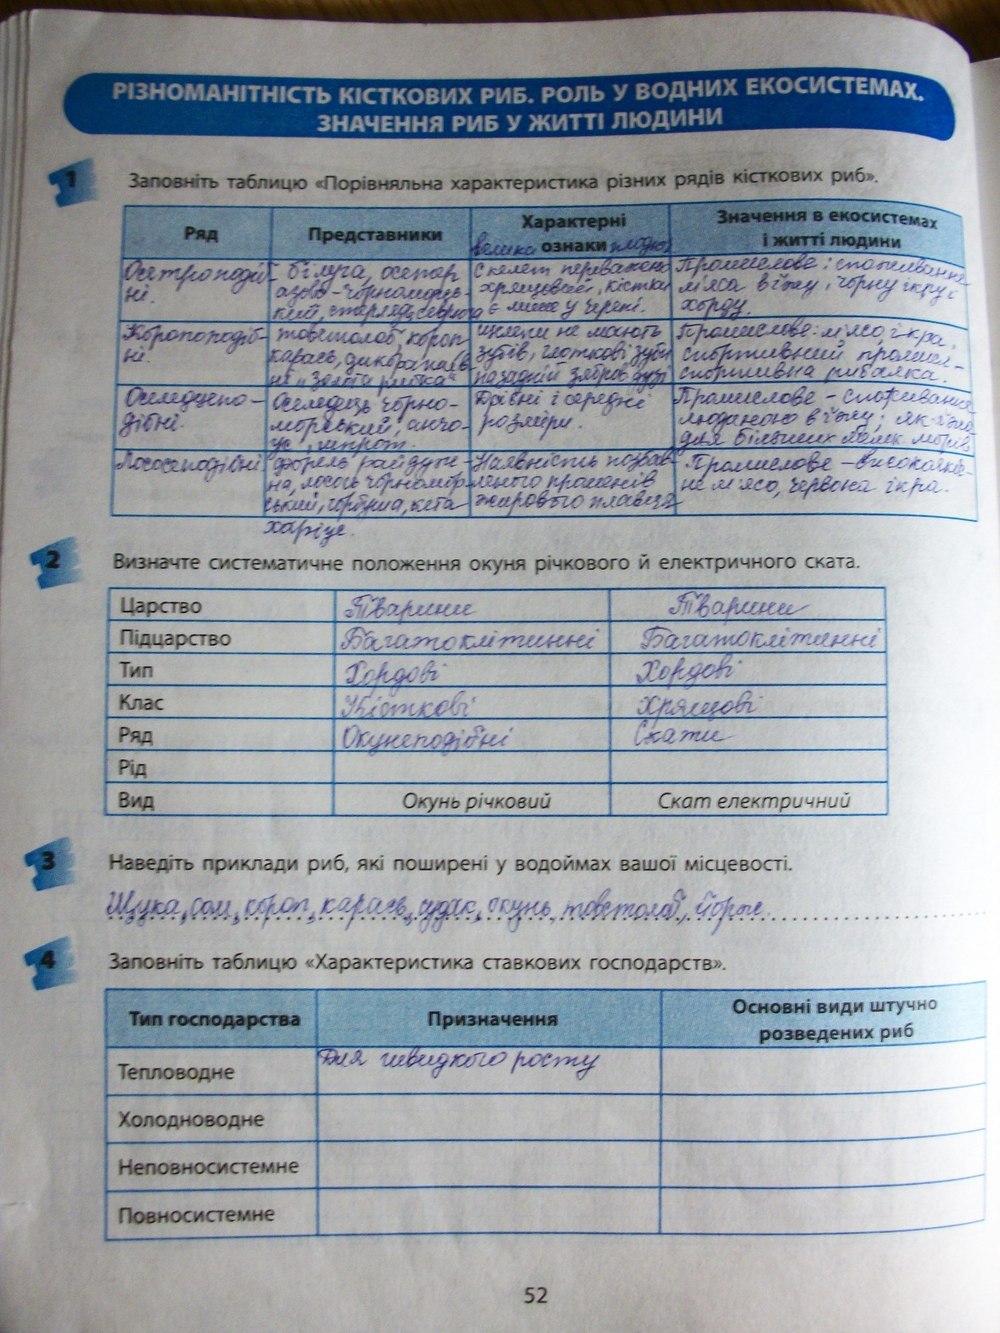 РІЗНОМАНІТНІСТЬ КІСТКОВИХ РИБ. РОЛЬ У ВОДНИХ ЕКОСИСТЕМАХ.
ЗНАЧЕННЯ РИБ У ЖИТТІ ЛЮДИНИ
1 Заповніть таблицю «Порівняльна характеристика різних рядів кісткових риб».
Ряд
Представники
Характерні
ознаки
велика
Значення в екосистемах
і житті людини
Осетроподіб-
ні.
білуга, осетер
азово-чорноморсь-
кий, стерлядь, севрюга
Скелет переважно
хрящовий, кістки
є лише у черепі.
Промислове: споживання
м'яса в їжу, чорну ікру і
хорду.
Коропоподіб-
ні.
товстолоб, короп
карась, дикора
"золота рибка"
щелепи не мають
зубів, глоткові зуби
на задній зябров. дузі
Промислове: м'ясо, ікра,
спортивний промисел -
спортивна рибалка.
Оселедцепо-
дібні.
Оселедець чорно-
морський, анчо-
ус, шпрот.
Дрібні і середні
розміри.
Промислове - споживання
людиною в їжу; як їжа
для більших
Лососеподібні
форель райдуж-
на, лосось чорномор-
ський, горбуша, кета
харіус.
Наявність позбав-
леного променів
жирового плавця
Промислове - високоякіс-
не м'ясо, червона ікра.
2 Визначте систематичне положення окуня річкового й електричного ската.
Царство Тварини Тварини
Підцарство Багатоклітинні Багатоклітинні
Тип Хордові Хордові
Клас Кісткові Хрящові
Ряд Окунеподібні Скати
Рід
Вид Окунь річковий Скат електричний
3 Наведіть приклади риб, які поширені у водоймах вашої місцевості.
Щука, сом, короп, карась, судак, окунь, товстолоб, йорж.
4 Заповніть таблицю «Характеристика ставкових господарств».
Тип господарства
Призначення
Основні види штучно
розведених риб
Тепловодне Для швидкого росту
Холодноводне
Неповносистемне
Повносистемне
52